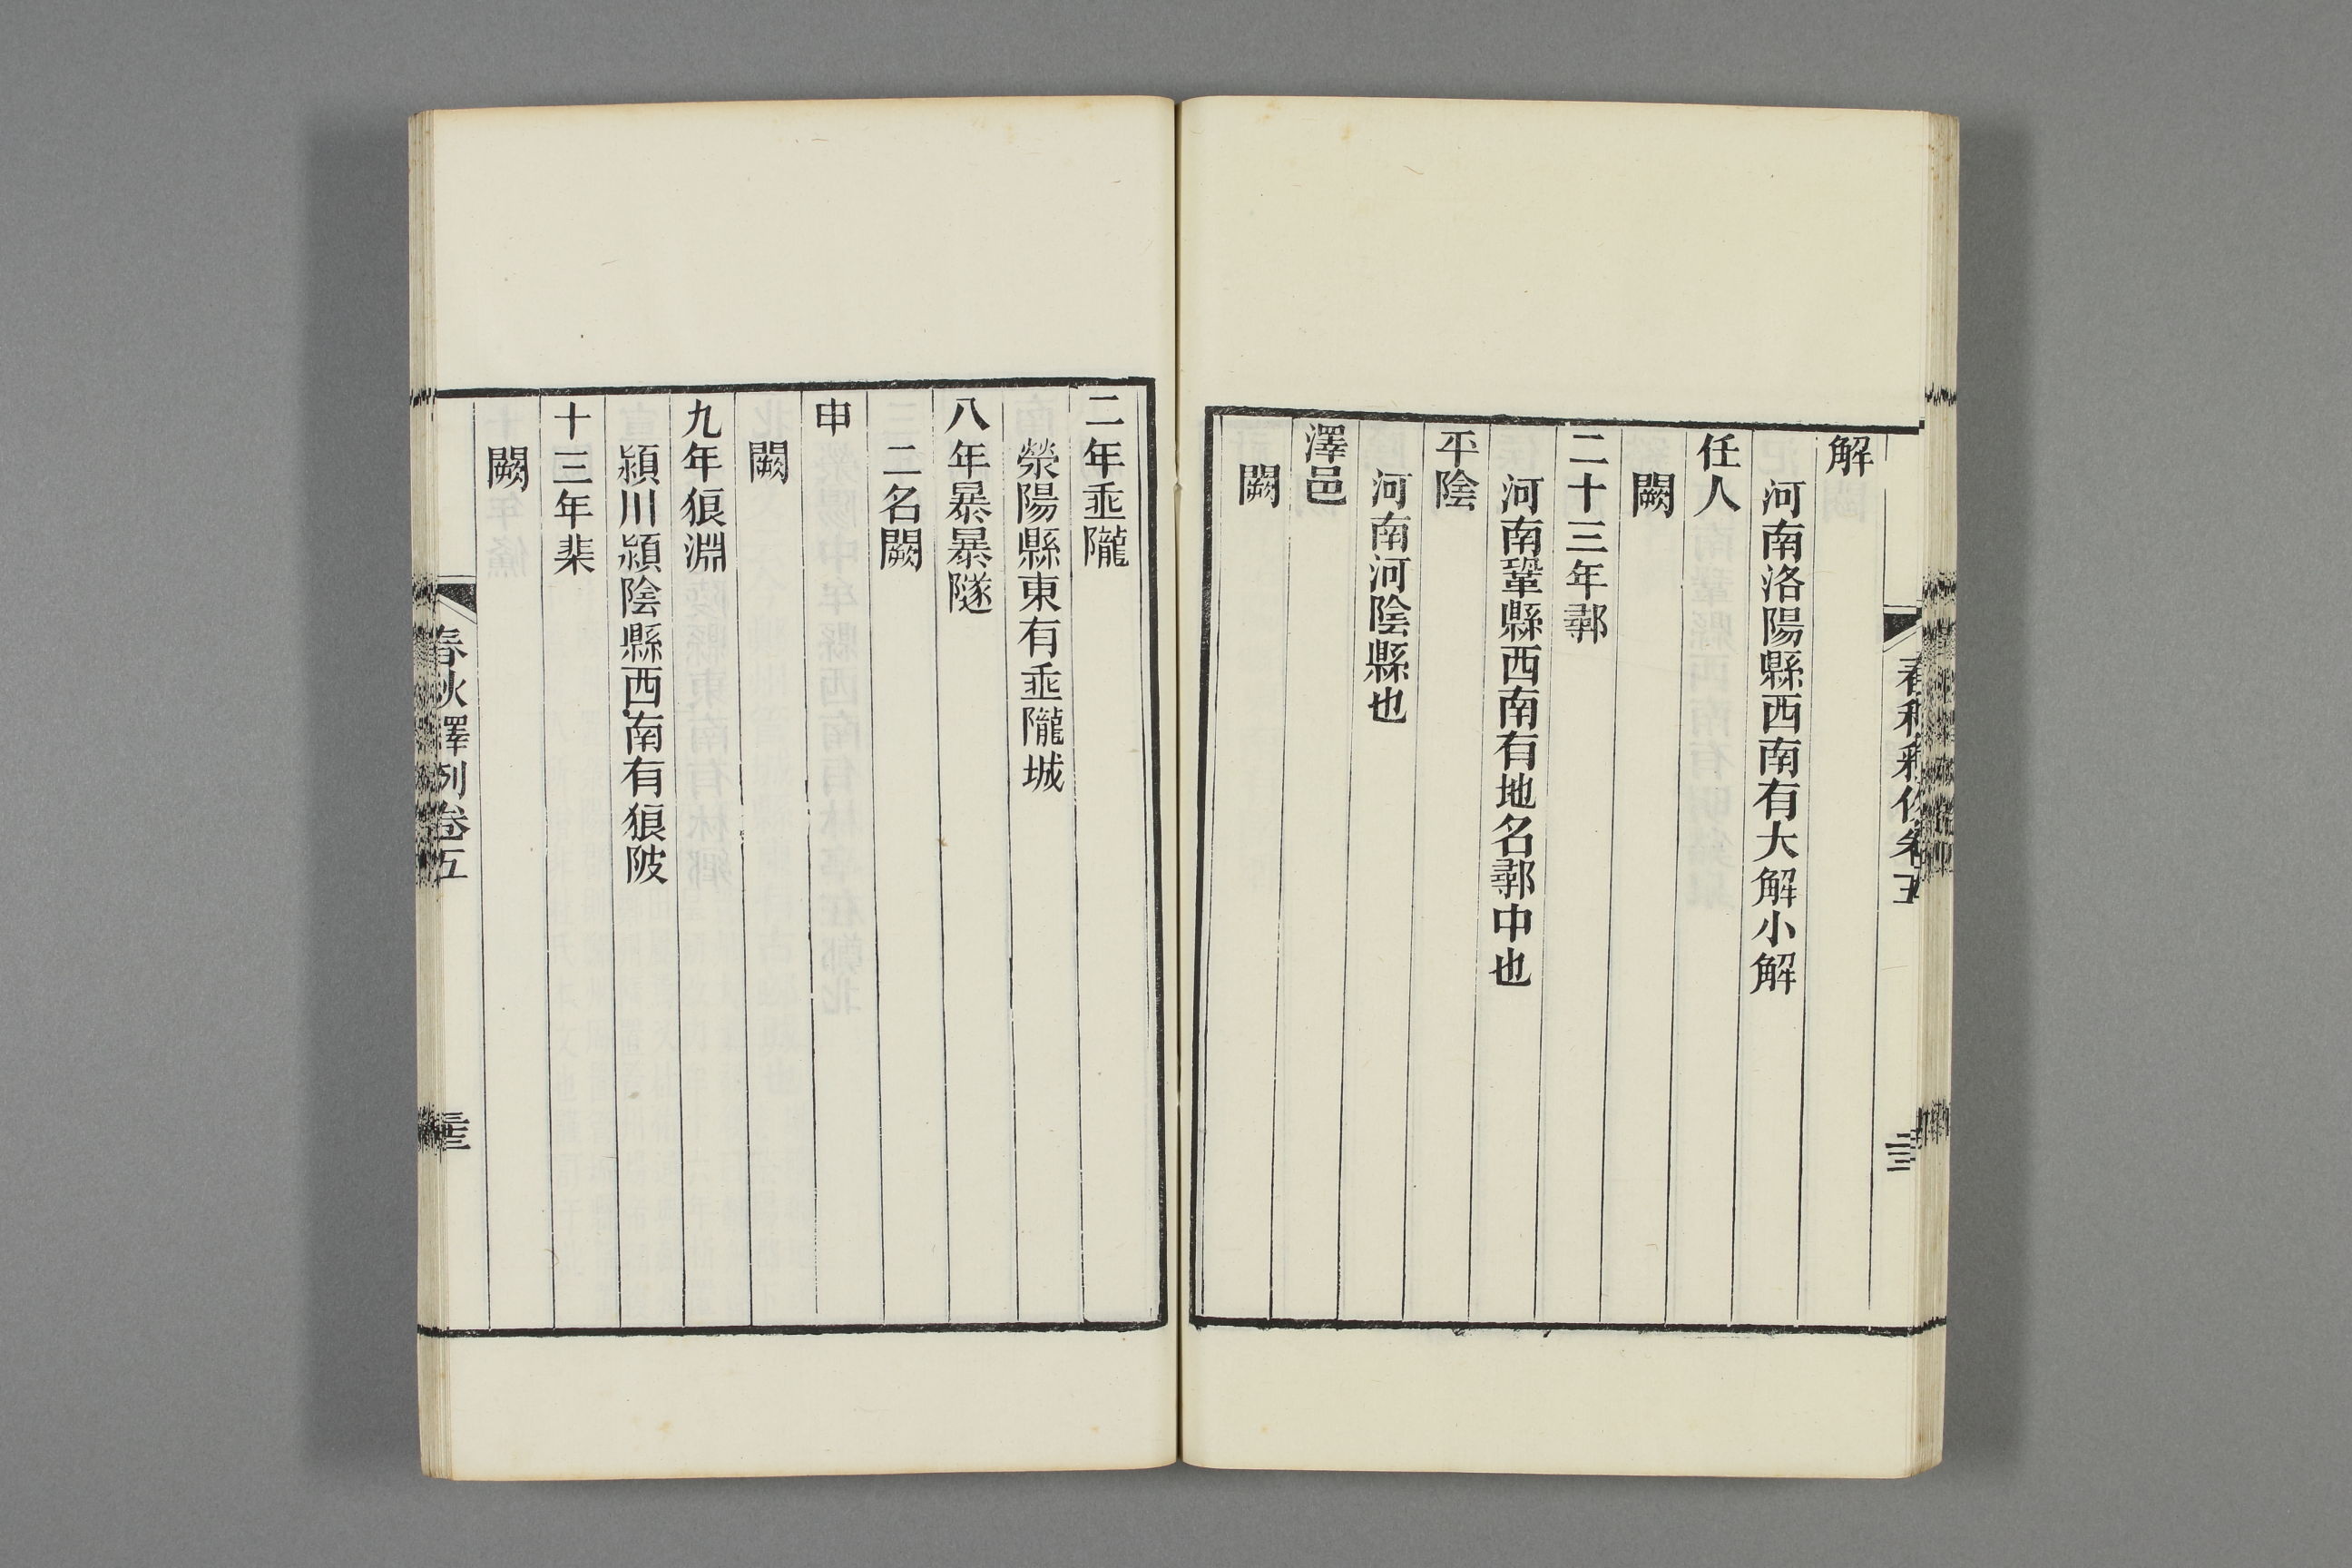 解
河南洛陽縣西南有大解小解
任人
闕
二十三年鄩
河南鞏縣西南有地名鄩中也
平陰
河南河陰縣也
澤邑
闕
二年垂隴
滎陽縣東有垂隴城
八年暴暴隧
二名闕
申
闕
九年狼淵
潁川潁陰縣西南有狼陂
十三年棐
闕
春秋釋例卷五